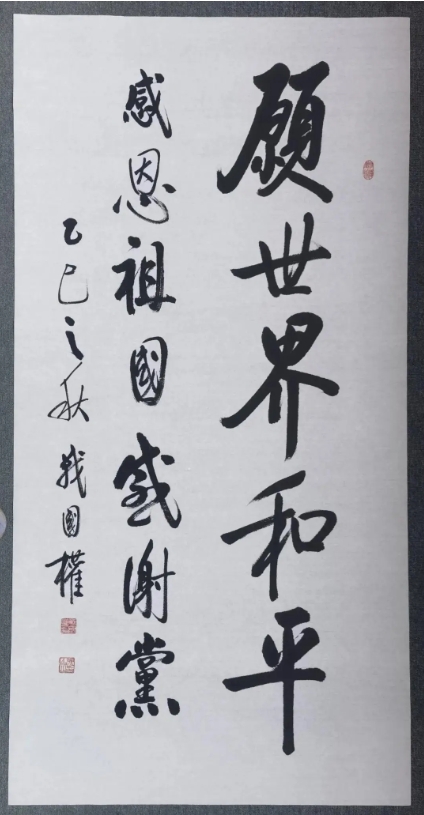 願世界和平
感恩祖國感谢黨
乙巳之秋战國權